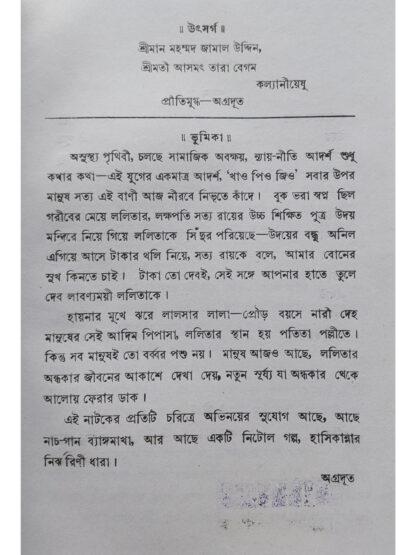 ॥ উৎসর্গ ॥
শ্রীমান মহম্মদ জামাল উদ্দিন,
শ্রীমতী আসমৎ তারা বেগম
কল্যানীয়েষু
প্রীতিমুগ্ধ—অগ্রদূত
॥ ভূমিকা ॥
অসুস্থ্য পৃথিবী, চলছে সামাজিক অবক্ষয়, ন্যায়-নীতি আদর্শ শুধু
কথার কথা—এই যুগের একমাত্র আদর্শ, 'খাও পিও জিও' সবার উপর
মানুষ সত্য এই বাণী আজ নীরবে নিভৃতে কাঁদে। বুক ভরা স্বপ্ন ছিল
গরীবের মেয়ে ললিতার, লক্ষপতি সত্য রায়ের উচ্চ শিক্ষিত পুত্র উদয়
মন্দিরে নিয়ে গিয়ে ললিতাকে সিঁদুর পরিয়েছে—উদয়ের বন্ধু অনিল
এগিয়ে আসে টাকার থলি নিয়ে, সত্য রায়কে বলে, আমার বোনের
সুখ কিনতে চাই। টাকা তো দেবই, সেই সঙ্গে আপনার হাতে তুলে
দেব লাবণ্যময়ী ললিতাকে।
হায়নার মুখে ঝরে লালসার লালা—প্রৌঢ় বয়সে নারী দেহ
মানুষের সেই আদিম পিপাসা, ললিতার স্থান হয় পতিতা পল্লীতে।
কিন্তু সব মানুষই তো বর্ব্বর পশু নয়। মানুষ আজও আছে, ললিতার
অন্ধকার জীবনের আকাশে দেখা দেয়, নতুন সূর্য্য যা অন্ধকার থেকে
আলোয় ফেরার ডাক।
এই নাটকের প্রতিটি চরিত্রে অভিনয়ের সুযোগ আছে, আছে
নাচ-গান ব্যাঙ্গমাখা, আর আছে একটি নিটোল গল্প, হাসিকান্নার
নির্ঝরিণী ধারা।
অগ্রদূত